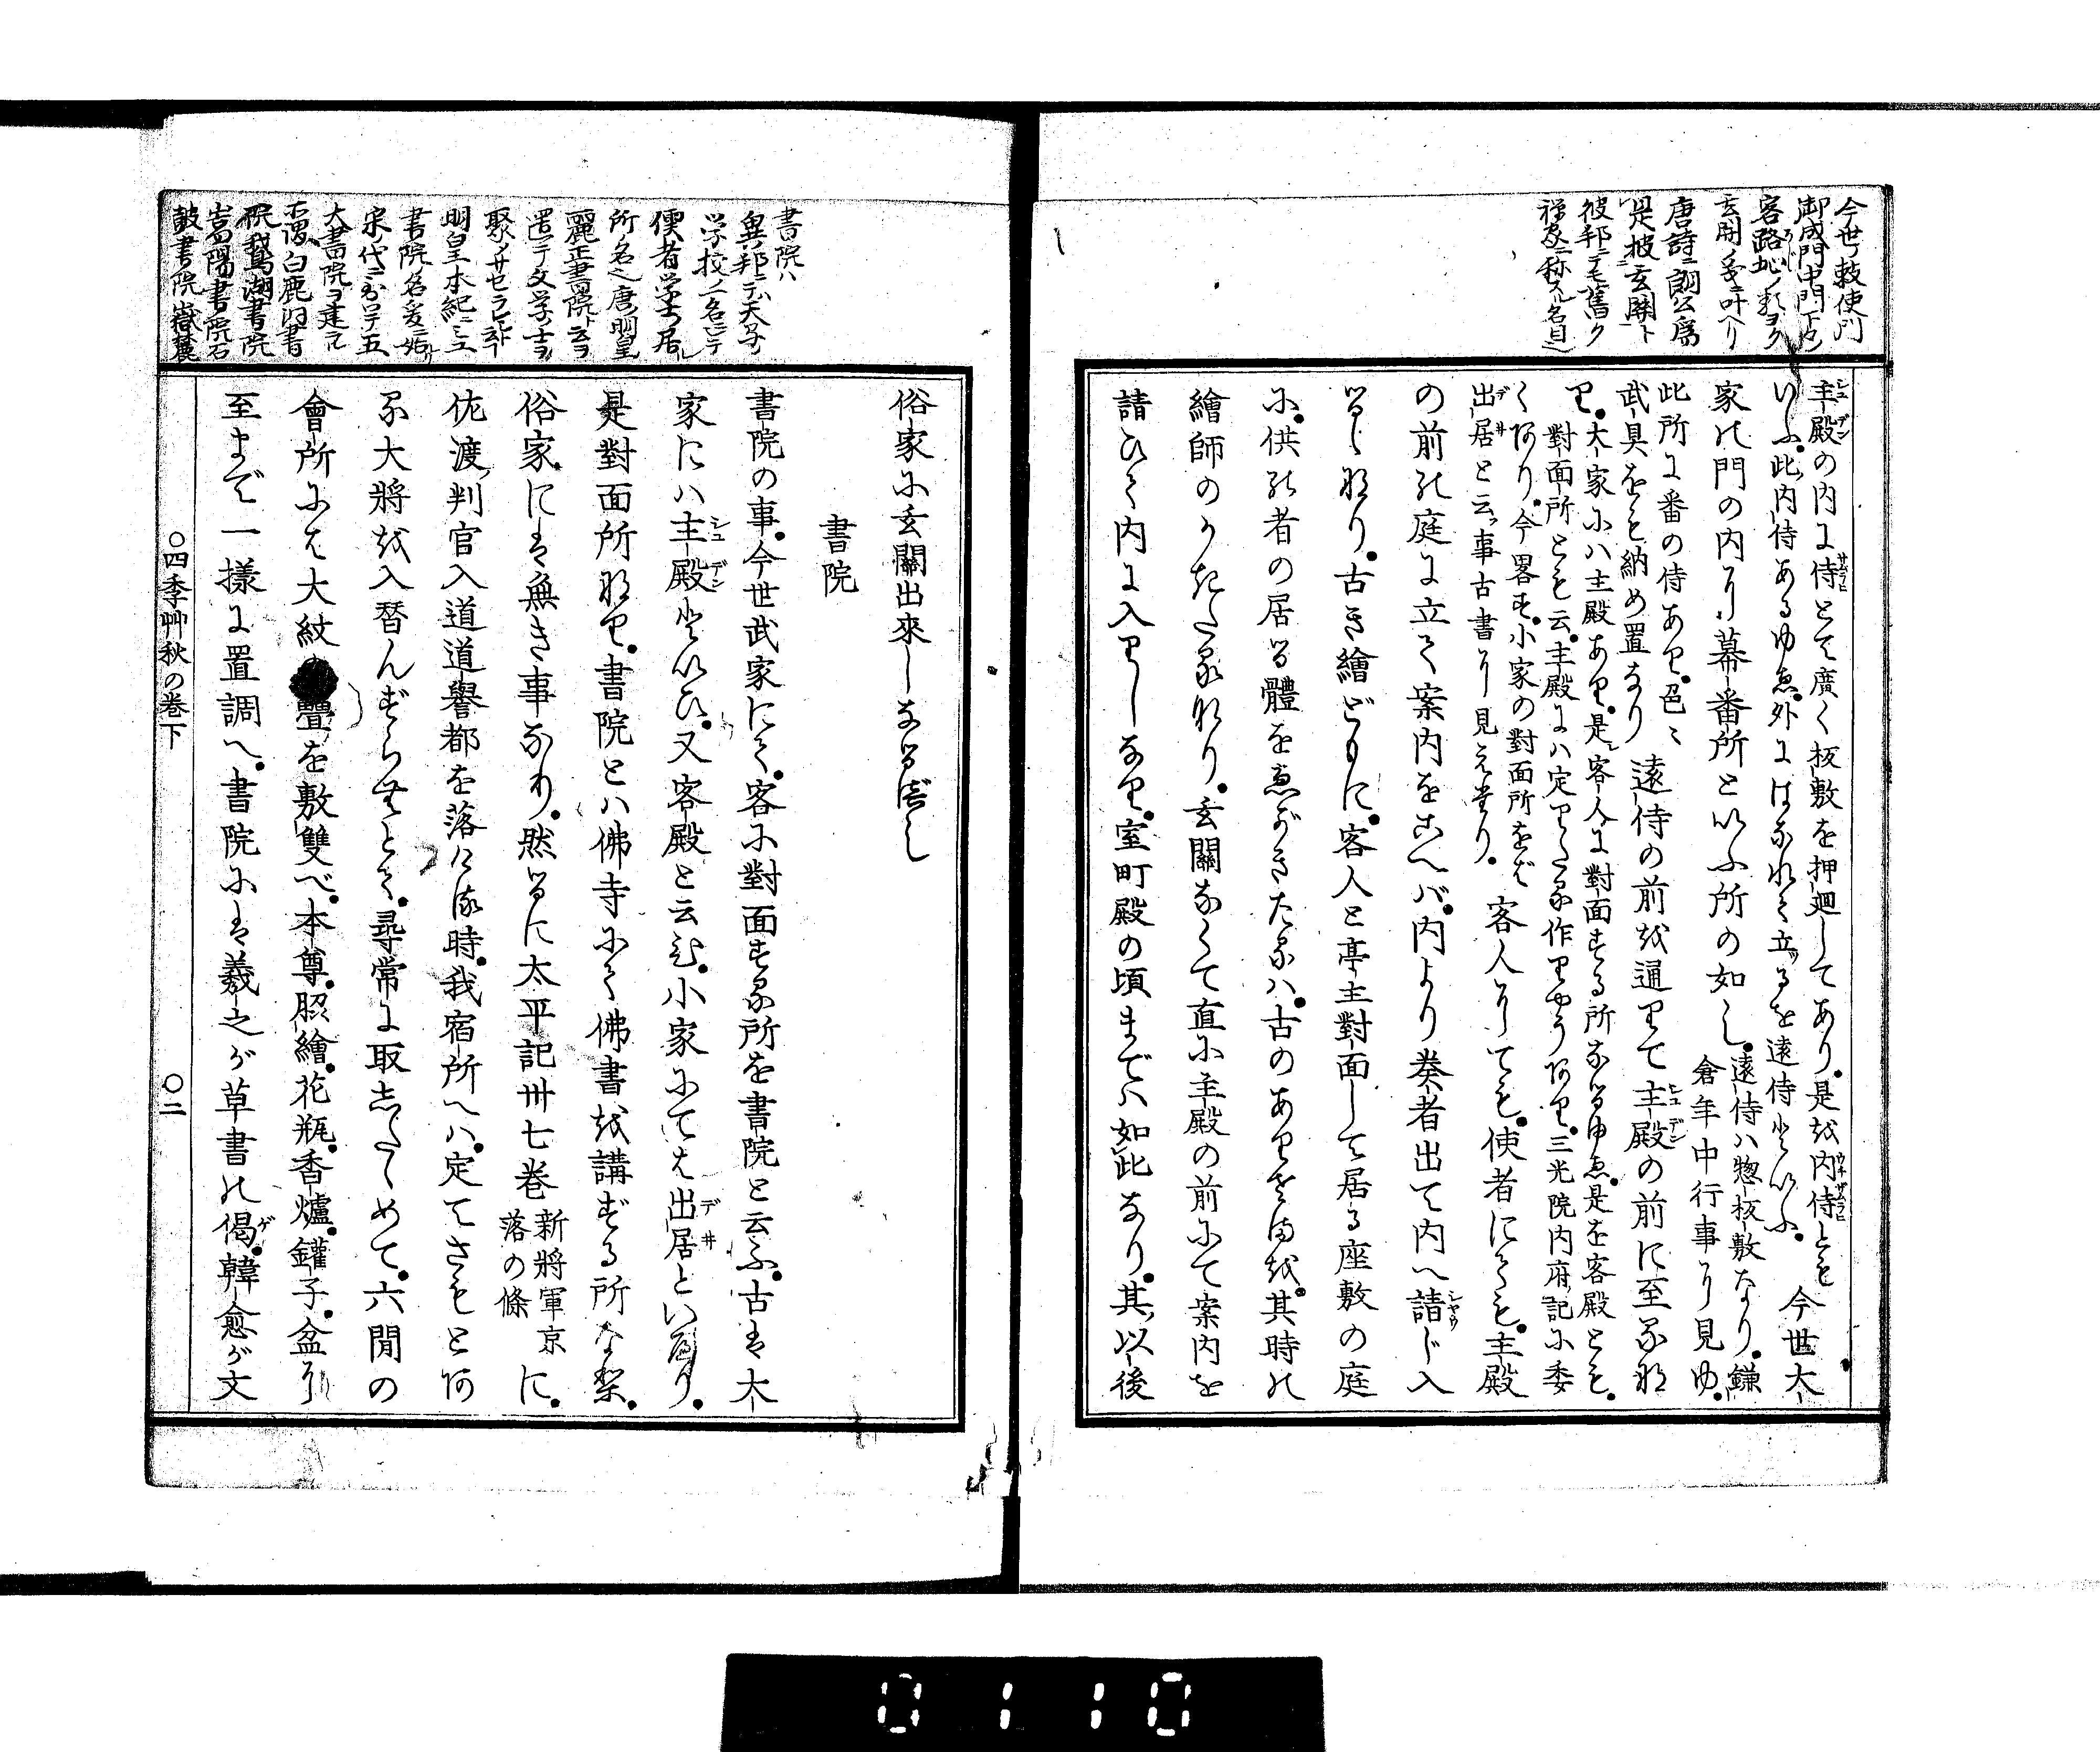 今世ヲ敕使門
御成門中門
客路地ノ類ヲク
玄関ト
唐詩ニ朗公房
是披玄關ト
彼邦ニテモ舊ク
禅家ニ称スル名目也
主殿の内に侍とて廣く板敷を押廻してあり是を内侍とも
いふ此内侍あるゆゑ外にはなれて立るを遠侍といふ 今世大
家の門の内に幕番所といふ所の如し 遠侍ハ惣板敷なり鎌
倉年中行事に見ゆ
此所に番の侍あり色々
武具をも納め置なり 遠侍の前を通りて主殿の前に至る
り大家にハ主殿あり是客人に對面する所なるゆゑ是を客殿とも
對面所とも云主殿にハ定りたる作りやうあり三光院内府記に委
くあり今畧す小家の對面所をば
出居と云事古書に見えたり 客人にても使者にても主殿
の前の庭に立て案内をこへバ内より奏者出て内へ請じ入
るゝなり古き繪どもに客人と亭主對面して居る座敷の庭
に供の者の居る體をゑがきたるハ古のありさまを其時の
繪師のかきたるなり玄關なくて直に主殿の前にて案内を
請ひて内に入りしなり室町殿の頃までハ如此なり其以後
俗家に玄關出來しなるべし
書院
書院の事今世武家にて客に對面する所を書院と云ふ古は大
家にハ主殿といひ又客殿と云ひ小家にては出居といへり
是對面所なり書院とハ佛寺にて佛書を講ずる所なり
俗家には無き事なり然るに太平記卅七巻 新將軍京
落の條 に
佐渡判官入道道譽都を落ける時我宿所へハ定てさもとあ
る大將を入替んずらむとて尋常に取したゝめて六間の
會所には大紋の疊を敷雙べ本尊脇繪花瓶香爐鑵子盆に
至まで一様に置調へ書院には羲之が草書の偈韓愈が文
書院ハ
異邦ニテハ天子ノ
学校ノ名ニテ
儒者学士ノ居ル
所ノ名也唐ノ明皇
麗正書院ト云ヲ
置テ文学ノ士ヲ
聚メサセラレシ
明皇本紀ニ云
書院ノ名爰ニ始
宋代ニ於テ五
大書院ヲ建テ
所謂白鹿洞書
院鵝湖書院
嵩陽書院石
鼓書院嶽麓
○四季艸秋の巻下
○二
0110